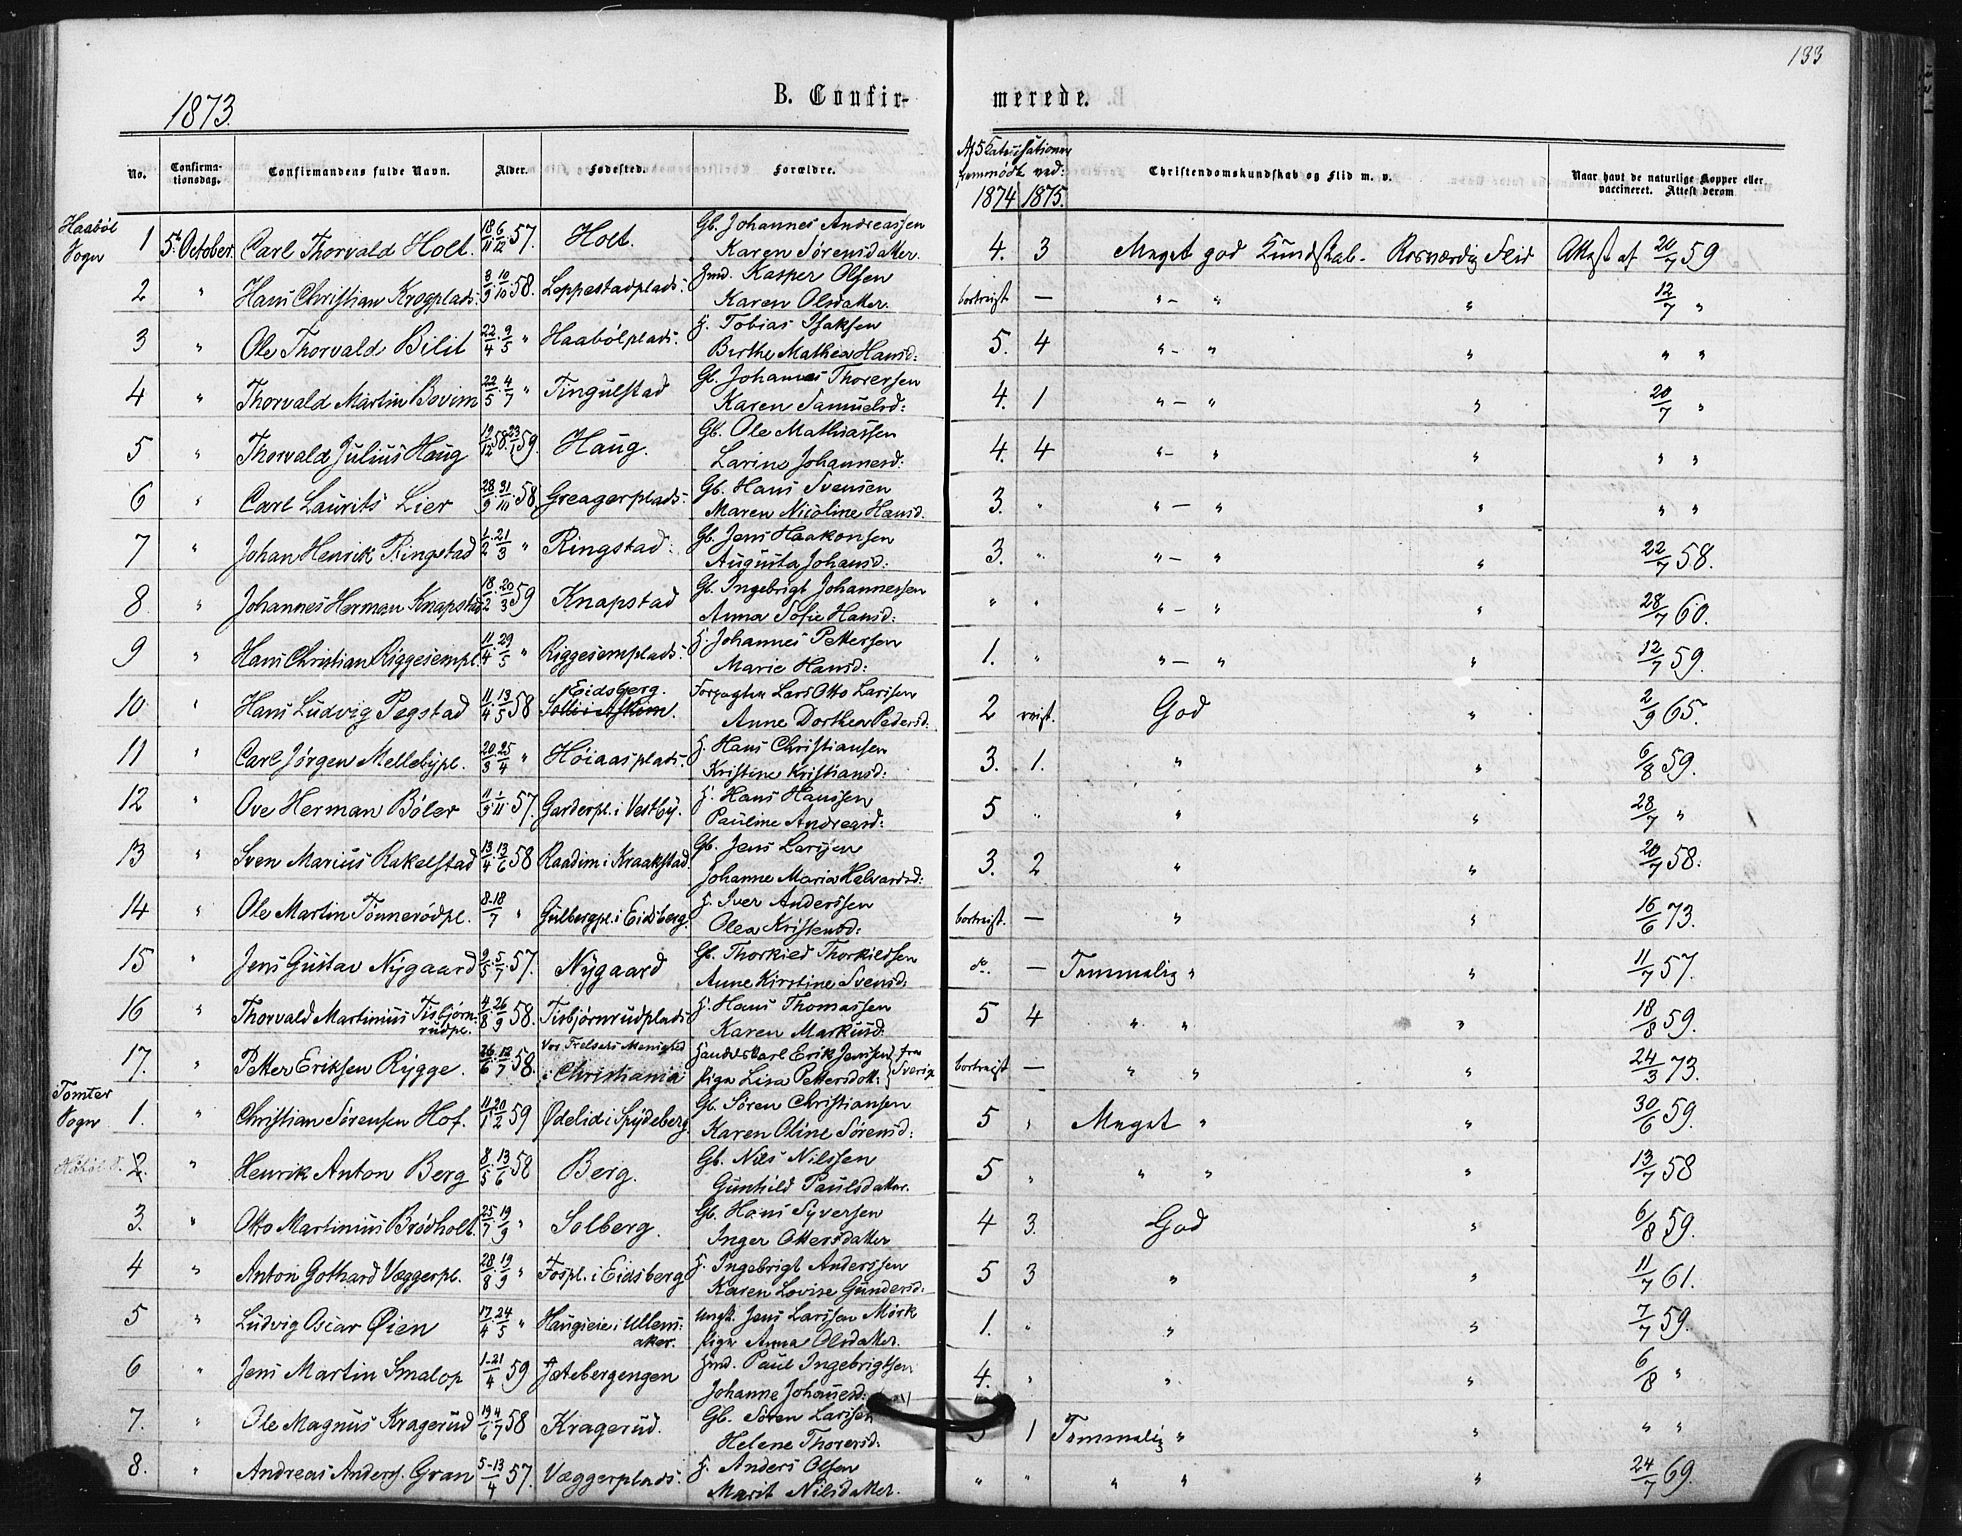 133
1873.
B. Confir-
merede.
No.
Confirma-
tionsdag.
Confirmandens fulde Navn.
Alder.
Fødested.
Forældre.
Af 5 Catechisationer
fremmødt ved:
1874 1875.
Christendomskundskab og Flid m. v.
Naar havt de naturlige Kopper eller
vaccineret. Attest derom
Haabøl
Sogn
1 5. October. Carl Thorvald Holt 18/11 6/12 57. Holt. Gb. Johannes Andreassen
Karen Sørensdatter. 4. 3 Meget god Kundskab. Rosværdig Flid Attest af 20/7 59
2 " Hans Christian Kragplads: 3/9 10/10 58. Loppestadplads: Hmd. Kasper Olsen
Karen Olsdatter. bortreist — " — " " 12/7 "
3 " Ole Thorvald Bilit 22/4 9/5 " Haabølplads: H. Tobias Isaksen
Berthe Mathea Hansd: 5. 4 " — " " " "
4 " Thorvald Martin Bovim 22/5 4/7 " Tingulstad Gb. Johannes Thorersen
Karen Samuelsd: 4. 1 " — " " 20/7 "
5 " Thorvald Julius Haug 19/12 58. 23/1 59. Haug. Gb. Ole Mathiassen
Larine Johannesd: 4. 4 " — " " " "
6 " Carl Laurits Lier 28/9 31/10 58. Greagerplads: Gb. Hans Svensen
Maren Nicoline Hansd. 3. " " — " " " "
7 " Johan Henrik Ringstad 1/2 21/3 " Ringstad: Gb. Jens Haakonsen
Augusta Johansd: 3. " " — " " 22/7 58.
8. " Johannes Herman Knapstad 18/2 20/3 59 Knapstad Gb. Ingebrigt Johannessen
Anna Sofie Hansd: " " " — " " 28/7 60.
9 " Hans Christian Riggesempl. 11/4 29/5 " Riggesemplads: H. Johannes Pettersen
Marie Hansd: 1. " " — " " 12/7 59.
10. " Hans Ludvig Pegstad 11/4 13/5 58 Eidsberg. Forpagter Lars Otto Larssen
Solli i Askim. Anne Dorthea Pedersd: 2 reist. God " 2/9 65.
11 " Carl Jørgen Mellebypl. 20/3 25/4 " Høiaasplads: H. Hans Christiansen
Kristine Kristiansd: 3. 1. " " 6/8 59.
12 " Ove Herman Bøler 11/9 1/11 57. Garderpl. i Vestby. H. Hans Hanssen
Pauline Andreasd: 5 " " " 28/7 "
13 " Sven Marius Rakelstad 13/4 13/6 58 Raadim i Kraakstad Gb. Jens Larsen
Johanne Maria Halvorsd: 3. 2 " " 20/7 58.
14 " Ole Martin Tønnerødpl. 8-18/7 " Gulbergpl. i Eidsberg. H. Iver Anderssen
Olea Kristensd: bortreist. — " " 16/6 73.
15 " Jens Gustav Nygaard 2/5 5/7 57. Nygaard Gb. Thorkied Thorkildsen
Anne Kirstine Svensd: do. — Temmelig " " 11/7 57.
16 " Thorvald Martinius Tisbjørn-
rudpl. 4/8 26/9 58. Tisbjørnrudplads: H. Hans Thomassen
Karen Markusd: 5 4 " " " 18/8 59.
17. " Petter Eriksen Rygge. 26/6 12/7 58. Vor Frelsers Menighed
i Christiania Handelskarl Erik Jansen fra
Pige Lisa Pettersdott: Sverig bortreist — " " " 24/3 73.
Tomter
Sogn
1. " Christian Sørensen Hof. 11/1 20/2 59 Ødelid i Spydeberg Gb. Søren Christiansen
Karen Oline Sørensd: 5 " Meget " " 30/6 59.
2. " Henrik Anton Berg 8/5 13/6 58 Berg. Gb. Nils Nilssen
Gunhild Paulsdatter. 5 " " " " 13/7 58
3. " Otto Martinius Brødholt. 25/7 19/9 " Solberg. Gb. Hans Syversen
Inger Ottersdatter 4 3. God " 6/8 59.
4 " Anton Gothard Væggerpl. 28/8 19/9 " Fospl. i Eidsberg H. Ingebrigt Anderssen
Karen Lovise Gundersd: 5 3 " " 11/7 61.
5 " Ludvig Oscar Øien 17/4 24/5 " Haugieie i Ullens:
aker. Ungk. Jens Larssen Mørk
Pige Anna Olsdatter. 1. " " " 7/7 59.
6 " Jens Martin Smalop 1-21/4 59 Jætebergengen Hmd. Paul Ingebrigtsen
Johanne Johannesd: 4. " " " 6/8 "
7. " Ole Magnus Kragerud 19/6 4/7 58 Kragerud. Gb. Søren Larssen
Helene Thorersd: 5 1 Temmelig " " " "
8. " Andreas Anders. Gran 5-13/4 57. Væggerplads: H. Anders Olsen
Marit Nilsdatter. " " " " " 24/7 69.